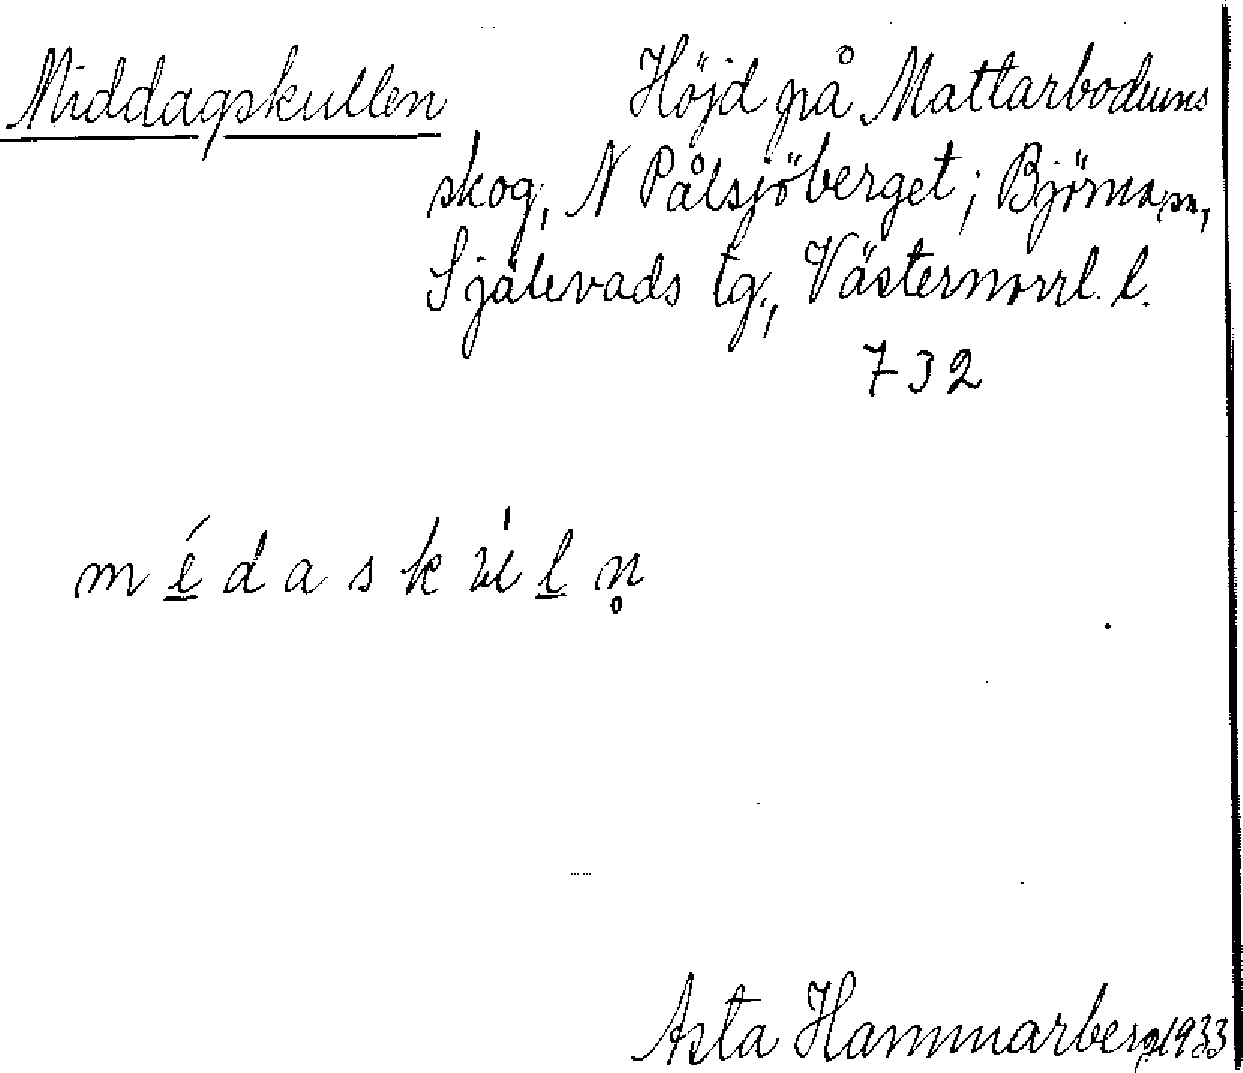 Middagskullen Höjd på Mattarbodums
skog, N Pålsjöberget; Björna sn,
Själevads tg., Västernorrl. l.
732
Asta Hammarberg 1933